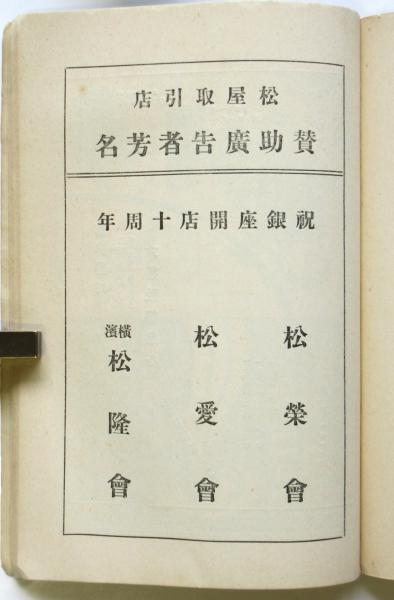 松屋取引店
賛助廣告者芳名
祝銀座開店十周年
松榮會
松愛會
橫濱松隆會